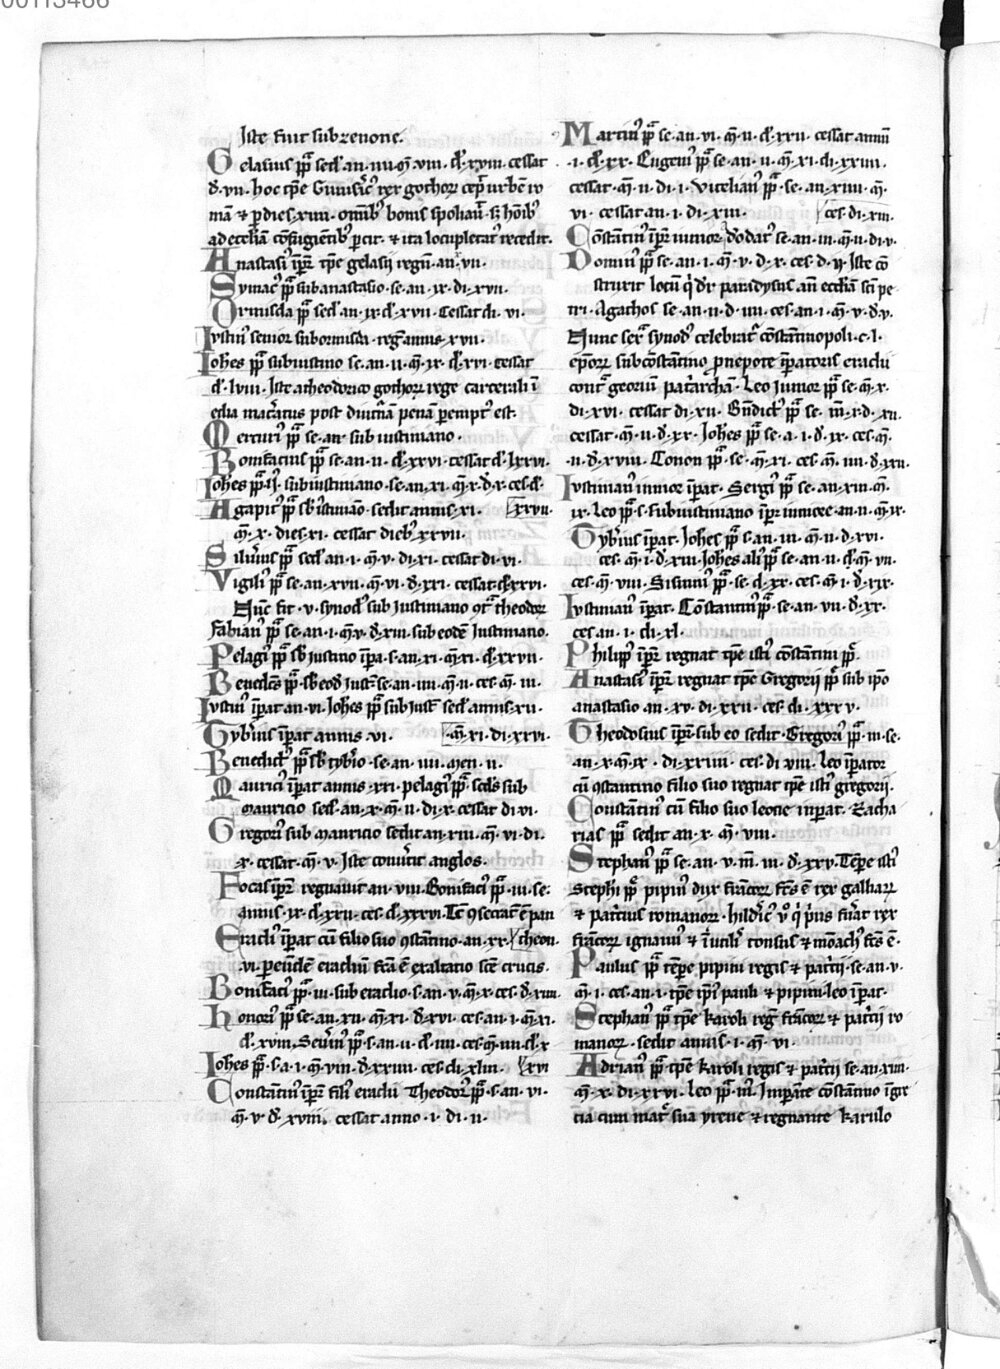 00113466
Iste fuit sub zenone.
Gelasius p̄p̄ sed̄. an. iiii. m̄. viii. d̄. xviii. cessat
d̄. vii. hoc tp̄e Gunsic᷒ rex gothoꝝ cep̄ urbē ro
mā & ꝑ dies xiiii. om̄ib᷒ bonis spoliauit s; hōib᷒
ad ecc̄liam ꝯfugientib᷒ ꝑcit. & ita locupletat᷒ recedit.
Anastasi᷒ īpr̄ tp̄e gelasii regn̄. an. vii.
Symac᷒ p̄p̄ sub anastasio. se. an. ix. di. xvii.
Ormisda p̄p̄ sed̄. an. ix. d̄. xvii. Cessat di. vi.
Iustin᷒ senior sub ormisda. reg. annis xvii.
Iohēs p̄p̄ sub iustino se. an. ii. m̄. ix. d̄. xvi. cessat
d̄. lviii. Iste a theodorico gothoꝝ rege carcerali ī
edia mac̄atus post diutinā penā ꝑempt᷒ est.
Mercuri᷒ p̄p̄ se. an᷒ sub iustiniano.
Bonifacius p̄p̄ se. an. ii. d̄. xxvi. cessat d̄. lxxvi.
Iohēs p̄p̄. ij. sub iustiniano. se. an. xi. m̄. x. d̄. x. ces. d̄.
Agapit᷒ p̄p̄ sb̄ istiniāo. sedit annis. xi. xxvii.
m̄. x. dies. xi. cessat dieb᷒ xxvii.
Siluīus p̄p̄ sed̄. an. i. m̄. v. di. xi. cessat di. vi.
Vigili᷒ p̄p̄ se. an. xvii. m̄. vi. d̄. xxi. cessat. d̄. xxvi.
Hūc fit. v. synod᷒ sub Iustiniano ꝯt᷒ theodoꝝ
Fabian᷒ p̄p̄ se. an. i. m̄. v. d̄. xiii. sub eodē Iustiniano.
Pelagi᷒ p̄p̄ sb̄ iustino īpa. s. an. xi. m̄. xi. d̄. xxvii.
Benedc̄s p̄p̄. sb̄ eod̄ iust. se. an. iiii. m̄. ii. ces. m̄. iii.
Iustin᷒ īperat an. vi. Iohēs p̄p̄ sub iust᷒ sed̄. annis. xii.
Tyb̄ius īpat annis. vi. m̄. xi. di. xxvi.
Benedict᷒ p̄p̄ sb̄ tyb̄io. se. an. iiii. men. ii.
Maurici᷒ īpat annis. xxi. pelagi᷒ p̄p̄. sed̄s sub
mauricio sed̄. an. x. m̄. ii. di. x. cessat di vi.
Gregori᷒ sub mauricio sedit an. xiii. m̄. vi. di.
x. cessat. m̄. v. Iste conūtit anglos.
Focas īpr̄ regnauit an. viii. Bonifaci᷒ p̄p̄. iii. se.
annis. ix. d̄. xxii. ces. d̄. xxxvi. Tc̄ ꝯsecrat᷒ ē pan
Eracli᷒ īpat cū filio suo ꝯstantino. an. xx. theon.
vi. ꝑ eundē eracliū fc̄a ē exaltatio sc̄e crucis.
Bonifaci᷒ p̄p̄. iii. sub eraclio. s. an. v. m̄. x. ces. d̄. xiii.
Honori᷒ p̄p̄ se. an. xii. m̄. xi. d̄. xvi. ces. an. i. m̄. xi.
d̄. xviii. Seūin᷒ p̄p̄. s. an. ii. d̄. iiii. ces. m̄. iiii. d̄. x
Iohēs p̄p̄. s. a. i. m̄. viii. d̄. xxiiii. ces. di. xliii. xvi
Constantin᷒ īpr̄ fili᷒ eraclii Theodor᷒ p̄p̄. s. an. vi.
m̄. v. d̄. xviii. cessat anno. i. di. ii.
Martin᷒ p̄p̄ se. an. vi. m̄. ii. d̄. xxii. cessat annū
.i. d̄. xx. Eugeni᷒ p̄p̄ se. an. ii. m̄. xi. di. xxiiii.
cessat. m̄. ii. di. i. Vitelian᷒ p̄p̄. se. an. xiiii. m̄.
vi. cessat an. i. di. xiii. ces. di. xiii.
Cōstātin᷒ īpr̄ iunior. d̄odat᷒ se. an. iii. m̄. ii. di. v.
Domn᷒ p̄p̄ se. an. i. m̄. v. d. x. ces. d. ij. Iste cō
struxit locū q̄ dr̄ paradysus an̄ eccliam sc̄i pe
tri. Agathos se. an. ii. d. iiii. ces. an. i. m̄. v. d. v.
Hunc sext᷒ synod᷒ celebrat᷒ cōstātinopoli. c. l.
ep̄oꝝ sub cōstātino ꝓnepote īpatoris eraclii
cont᷒ georiū pat̄archā. Leo iunior p̄p̄ se. m̄. x.
di. xvi. cessat di. xii. Bn̄dict᷒ p̄p̄ se. m̄. x. d. xii.
cessat. m̄. ii. d̄. xx. Iohēs p̄p̄ se. a. i. d̄. ix. ces. m̄.
.ii. d̄. xviii. Conon p̄p̄. se. m̄. xi. ces. m̄. iiii. d̄. xxii.
Iustinian᷒ iunior īpat. Sergi᷒ p̄p̄ se. an. xiii. m̄.
ix. Leo p̄p̄. s. sub iustiniano īpr̄ iuniore. an. ii. m̄. ix.
Tyb̄ius īpat. Iohēs p̄p̄ s. an. iii. m̄. ii. d. xvi.
ces. m̄. i. d̄. xiii. Iohēs ali᷒ p̄p̄ se. an. ii. m̄. vii.
ces. m̄. viii. Sisinni᷒ p̄p̄. se. d̄. xx. ces. m̄. i. d̄. xix.
Iustinian᷒ īpat. Cōstantin᷒ p̄p̄. se. an. vii. d̄. xx.
ces. an. i. di. xl.
Philipp᷒ īpr̄ regnat tp̄e isti᷒ cōstantini p̄p̄.
Anastasi᷒ īpr̄ regnat tp̄e Gregorii p̄p̄ sub ipo
anastasio an. xv. di. xxii. ces. di. xxxv.
Theodosius īpr̄. sub eo sedit. Gregori᷒ p̄p̄. iii. se.
an. x. m̄. ix. di. xxiiii. ces. di. viii. leo īpator
cū ꝯstantino filio suo regnat tp̄e isti᷒ gregorii.
Constātin᷒ cū filio suo leone inpat. Zacha
rias p̄p̄ sedit an. x. m̄. viii.
Stephan᷒ p̄p̄ se. an. v. m̄. iii. d̄. xxv. Tēpe isti᷒
stephi p̄p̄ pipin᷒ dux francoꝝ fc̄s ē rex galliaꝝ
& patcius romanoꝝ. hildic᷒ ū q̄ p̄us fuāt rex
francoꝝ ignauu᷒ & īutil᷒ tonsus & mōach᷒ fc̄s ē.
Paulus p̄p̄ tēpe pipini regis & patcii. se. an. v.
m̄. i. ces. an. i. tp̄e ip̄i᷒ pauli & pipini leo īpat.
Stephan᷒ p̄p̄ tp̄e karoli reḡ francoꝝ & patcii ro
manoꝝ. sedit annis. i. m̄. vi.
Adrian᷒ p̄p̄ tp̄e karoli regis & patcii se. an. xiii.
m̄. x. di. xxvi. Leo p̄p̄. iii. Imp̄ante cōstātino ī gre
cia cum mat᷒ sua yrene & regnante karulo